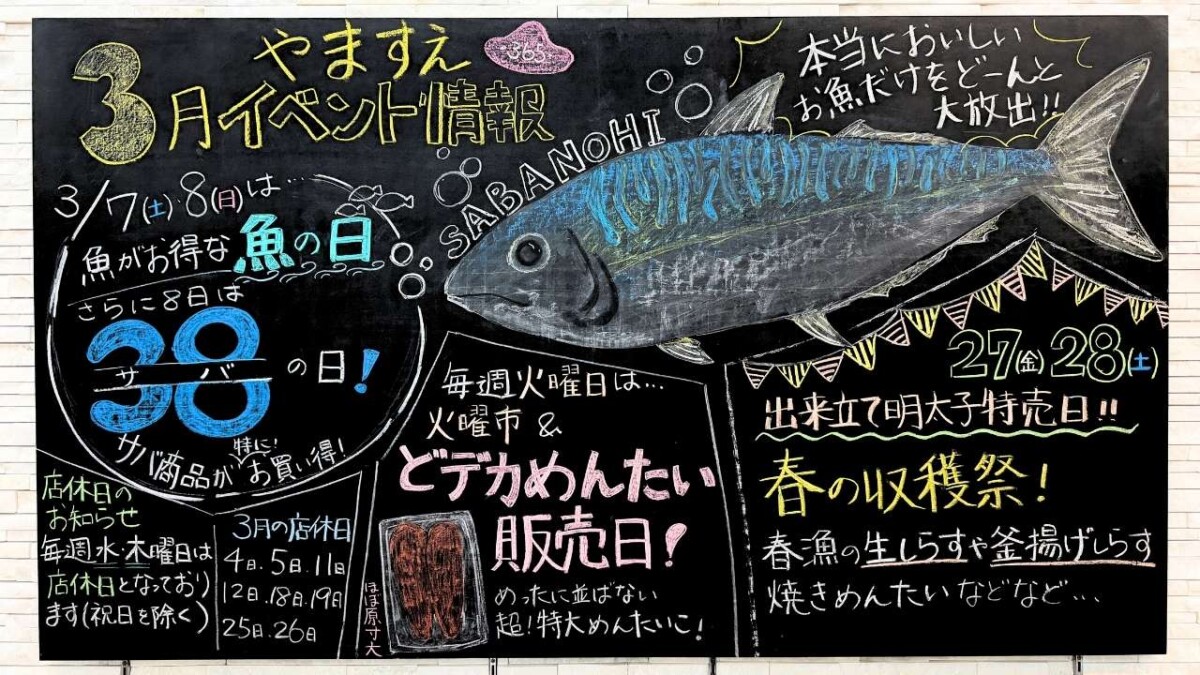 やますえ
365
3月イベント情報
本当においしい
お魚だけをどーんと
大放出!!
SABANOHI
3/7(土)・8(日)は…
魚がお得な魚の日
さらに8日は
38の日!
サバ
特に!
サバ商品がお買い得!
店休日の
お知らせ
毎週水・木曜日は
店休日となっており
ます(祝日を除く)
3月の店休日
4日.5日.11日
12日.18日.19日
25日.26日
毎週火曜日は…
火曜市&
どデカめんたい
販売日!
ほぼ原寸大
めったに並ばない
超!特大めんたいこ!
27(金)28(土)
出来立て明太子特売日!!
春の収穫祭!
春漁の生しらすや釜揚げしらす
焼きめんたいなどなど…